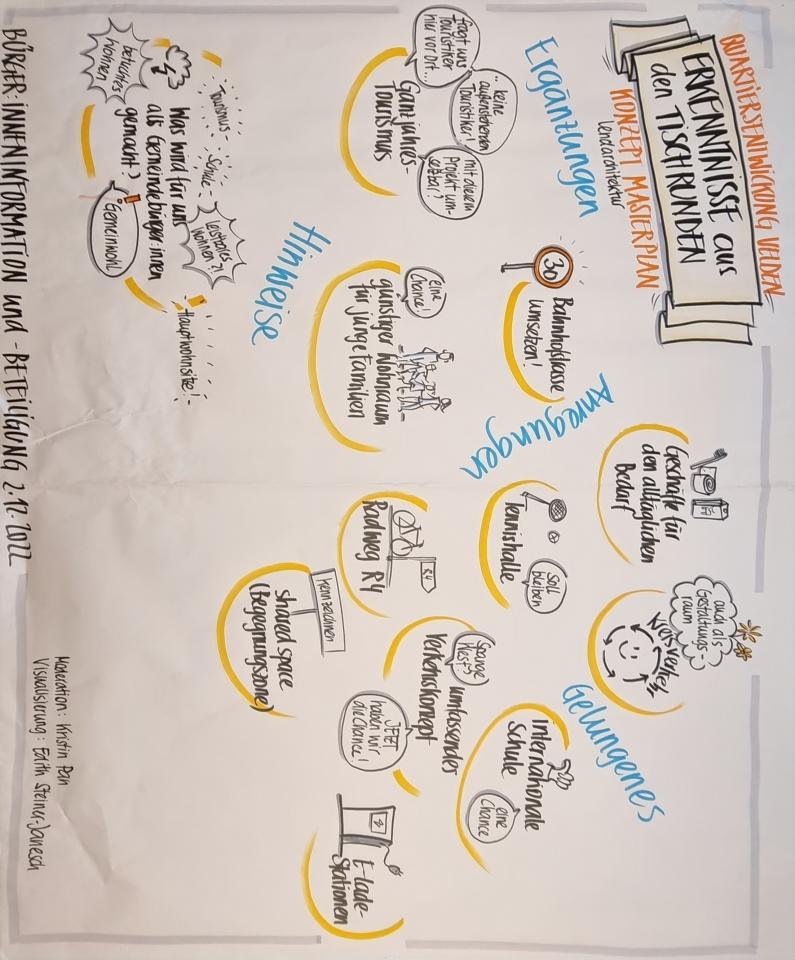 QUARTIERSENTWICKLUNG VELDEN
ERKENNTNISSE aus
den TISCHRUNDEN
KONZEPT MASTERPLAN
Lendarchitektur
Ergänzungen
fragt uns
Touristiker
hier vor Ort...
...keine
außenstehenen
Touristiker!
mit diesem
Projekt um-
setzbar?
Ganzjahres-
Tourismus
30
Bahnhofstrasse
umsetzen!
Anregungen
Geschäfte für
den alltäglichen
Bedarf
auch als
Gestaltungs-
raum
Kreisverkehr
Gelungenes
Tennishalle
soll
bleiben
Internationale
Schule
eine
Chance
Hinweise
eine
Chance!
günstiger Wohnraum
für junge Familien
R4
Radweg R4
umfassendes
Verkehrskonzept
JETZT
haben wir
die Chance!
kennzeichnen
shared space
(Begegnungszone)
E-lade-
Stationen
Tourismus
Schule
leistbares
Wohnen?!
Hauptwohnsitze!
betreutes
Wohnen
Was wird für uns
als Gemeindebürger:innen
gemacht?
Gemeinwohl
BÜRGER:INNENINFORMATION und -BETEILIGUNG 2.12.2022
Moderation: Kristin Pan
Visualisierung: Edith Steiner-Janesch